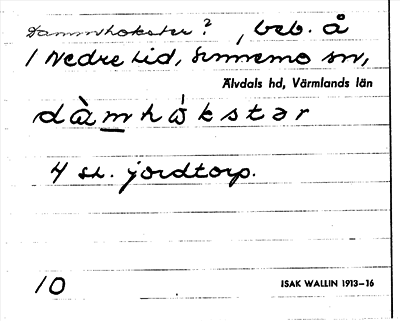 Dammhokster? , beb. å
1 Nedre Lid, Sunnemo sn,
Älvdals hd, Värmlands län
dàmhåkstər
4 st. jordtorp.
10 ISAK WALLIN 1913–16